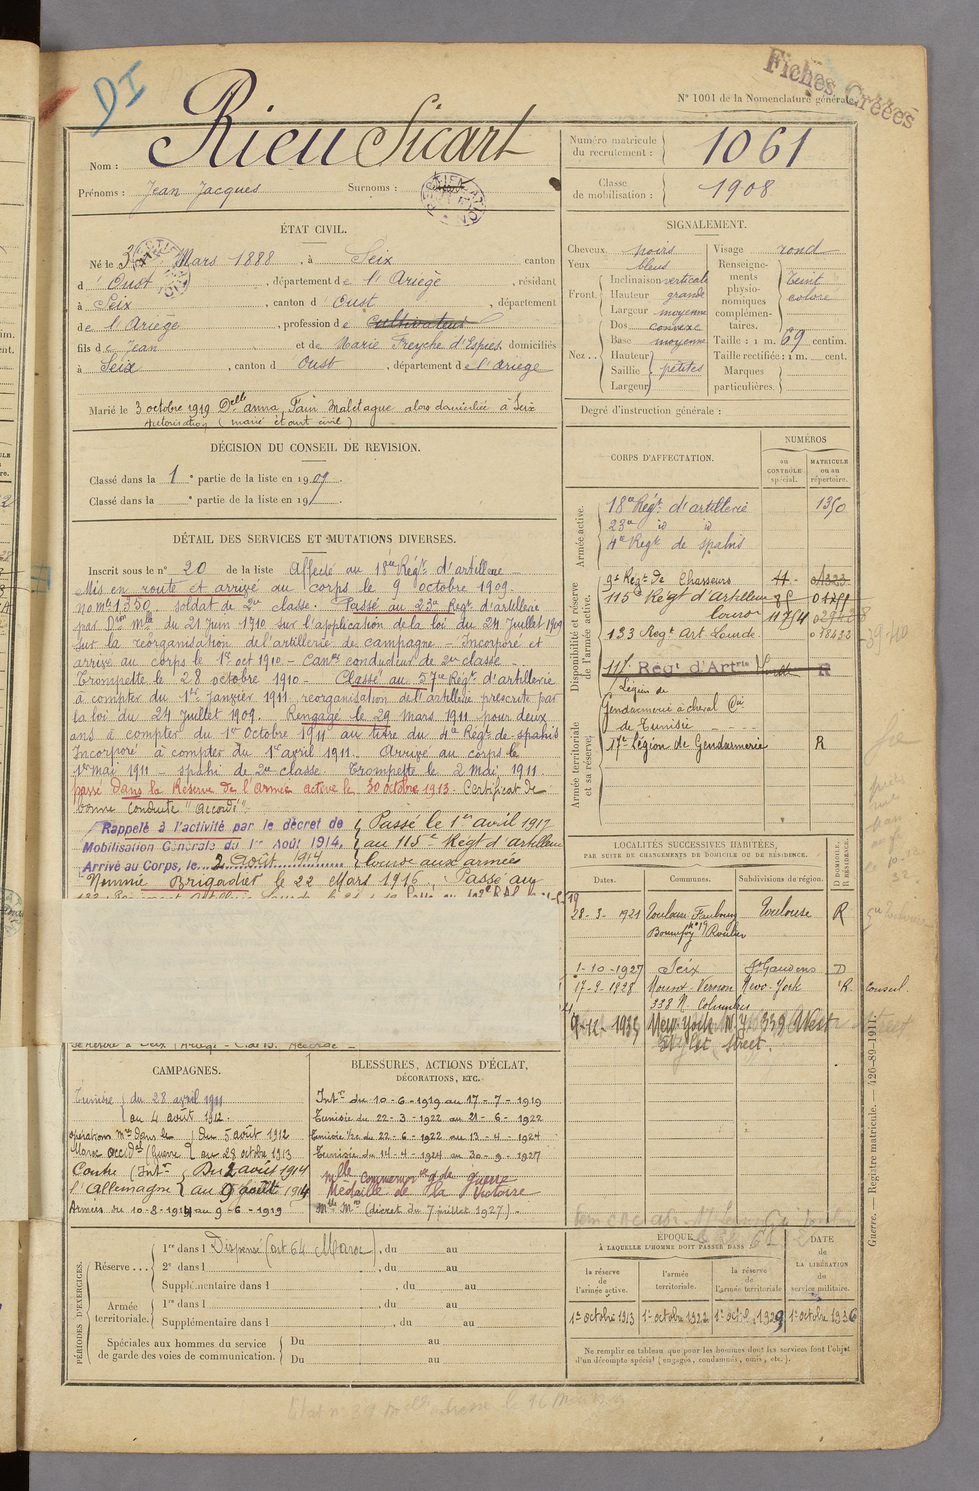 DI
Fiches Créées
N° 1001 de la Nomenclature générale.
Nom : Rieu Sicart
Prénoms : Jean Jacques Surnoms :
Numéro matricule du recrutement : 1061
Classe de mobilisation : 1908
ÉTAT CIVIL.
Né le 3 Mars 1888, à Seix canton
d'Oust, département de l'Ariège, résidant
à Seix, canton d'Oust, département
de l'Ariège, profession de cultivateur
fils de Jean et de Marie Freyche d'Espies domiciliés
à Seix, canton d Oust, département de l'Ariège
Marié le 3 octobre 1919 Delle anna Fain Maletague alors domiciliée à Seix
autorisation (marié étant civil)
SIGNALEMENT.
Cheveux noirs
Yeux bleus
Front. Inclinaison verticale
Hauteur grande
Largeur moyenne
Nez.. Dos convexe
Base moyenne
Hauteur
Saillie petites
Largeur
Visage rond
Renseignements physionomiques complémentaires. Teint coloré
Taille : 1 m. 69 centim.
Taille rectifiée : 1 m. cent.
Marques particulières.
Degré d'instruction générale :
DÉCISION DU CONSEIL DE REVISION.
Classé dans la 1e partie de la liste en 1909.
Classé dans la e partie de la liste en 19 .
DÉTAIL DES SERVICES ET MUTATIONS DIVERSES.
Inscrit sous le n° 20 de la liste Affecté au 18me Régt. d'artillerie
Mis en route et arrivé au corps le 9 octobre 1909.
no mle 1350. soldat de 2me classe. Passé au 23e Regt. d'artillerie
par Dion Mlle du 21 Juin 1910 sur l'application de la loi du 24 Juillet 1909
sur la réorganisation de l'artillerie de campagne – Incorporé et
arrivé au corps le 1er oct 1910 – Canre conducteur de 2me classe
Trompette le 28 octobre 1910 – Classé au 57me Régt. d'artillerie
à compter du 1er Janvier 1911 reorganisation de l'artillerie prescrite par
la loi du 24 Juillet 1909. Rengagé le 29 Mars 1911 pour deux
ans à compter du 1er Octobre 1911 au titre du 4e Regt de spahis
Incorporé à compter du 1er avril 1911. Arrivé au corps le
1er mai 1911 – spahi de 2me classe Trompette le 2 Mai 1911.
passé dans la Réserve de l'Armée active le 30 octobre 1913. Certificat de
bonne conduite "Accordé".
Rappelé à l'activité par le décret de
Mobilisation Générale du 1er Août 1914.
Arrivé au Corps, le 2 Août 1914
Passé le 1er avril 1917
au 115e Regt d'artillerie
lourde aux armées
Nommé Brigadier le 22 Mars 1916. Passé au
CORPS D'AFFECTATION.
NUMÉROS
au CONTRÔLE spécial.
MATRICULE ou au répertoire.
Armée active.
18me Régt. d'artillerie 1350
23e id id
4e Regt de spahis
Disponibilité et réserve de l'armée active.
9e Régt de Chasseurs
115e Régt d'Artillerie lourde
133 Regt Art. Lourde.
117 Regt d'Artie Lourde R
Armée territoriale et sa réserve.
Légion de
Gendarmerie à cheval Cie
de Tunisie
17e Légion de Gendarmerie R
LOCALITÉS SUCCESSIVES HABITÉES,
PAR SUITE DE CHANGEMENTS DE DOMICILE OU DE RÉSIDENCE.
Dates. Communes. Subdivisions de région. D DOMICILE, R RÉSIDENCE.
28-3-1921 Toulouse Faubourg Bonnefoy Toulouse R
1-10-1927 Seix St Gaudens D
17-9-1928 Mount-Vernon New-York R
338 N. Columbus
9-12-1935 New York N.Y. 339 West
Street.
Conseil.
CAMPAGNES.
Tunisie du 28 avril 1911
au 4 août 1912.
opérations Mres dans le du 5 août 1912
Maroc occidal (Guerre au 28 octobre 1913
Contre (Intr Du 2 août 1914
l'Allemagne au 9 août 1914
Armées du 10-8-1914 au 9-6-1919
BLESSURES, ACTIONS D'ÉCLAT,
DÉCORATIONS, ETC.
Intr du 10-6-1919 au 17-7-1919
Tunisie du 22-3-1922 au 21-6-1922
Tunisie du 22-6-1922 au 13-4-1924
Tunisie du 14-4-1924 au 30-9-1927
Mlle commémorve gde guerre
Médaille de la Victoire
Mlle Mre (décret du 7 juillet 1927)
PÉRIODES D'EXERCICES.
Réserve... 1re dans l Dispensé (art 64 Maroc), du au
2e dans l , du au
Supplémentaire dans l , du au
Armée territoriale. 1re dans l , du au
Supplémentaire dans l , du au
Spéciales aux hommes du service de garde des voies de communication. Du au
Du au
ÉPOQUE
À LAQUELLE L'HOMME DOIT PASSER DANS
la réserve de l'armée active.
l'armée territoriale.
la réserve de l'armée territoriale
DATE de LA LIBÉRATION du service militaire.
1er octobre 1913 1er octobre 1922 1er octobre 1929 1er octobre 1936
Ne remplir ce tableau que pour les hommes dont les services font l'objet d'un décompte spécial (engagés, condamnés, omis, etc.).
Guerre. — Registre matricule. — 426-89-1911.